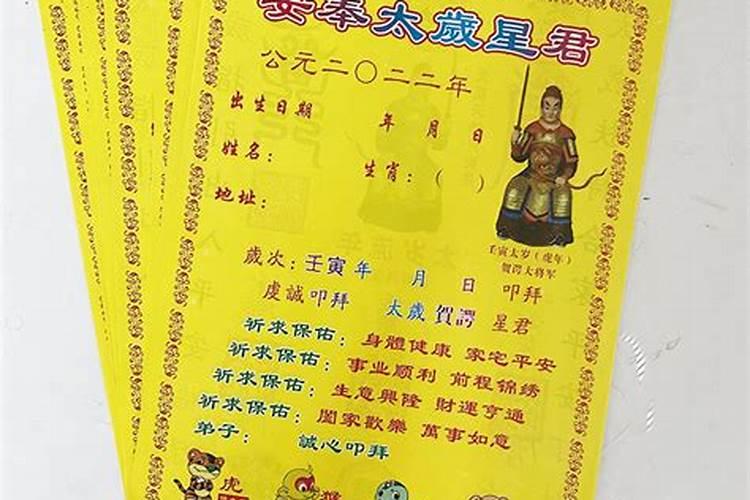 安奉太歲星君
公元二〇二二年
出生日期 年 月 日
姓名： 生肖：（ ）
地址：
壬寅太岁（虎年）
贺谔大将军
歲次：壬寅年 月 日 叩拜
虔誠叩拜 太歲賀諤 星君
祈求保佑：身體健康 家宅平安
祈求保佑：事业顺利 前程锦绣
祈求保佑：生意興隆 財運亨通
祈求保佑：闔家歡樂 萬事如意
弟子： 誠心叩拜
虎 猴